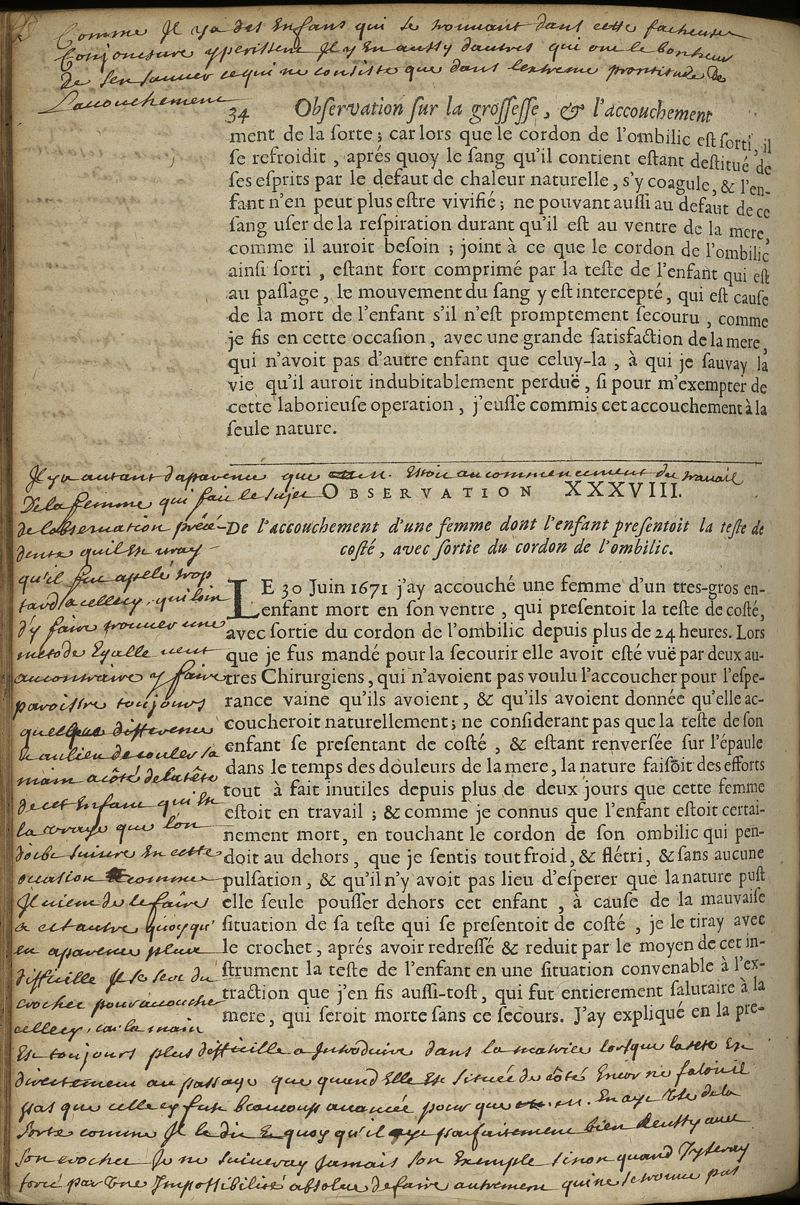 Comme Il y a des Enfans qui se trouvant dans cette facheuse
Conjoncture y perissent Il y En a ussy dautres qui ont le bonheur
de sen sauver ce qui ne consiste que dans lextreme promtitude de
Laccouchement
34 Obſervation ſur la groſſeſſe, & l'accouchement
ment de la ſorte ; car lors que le cordon de l'ombilic eſt ſorti, il
ſe refroidit , aprés quoy le ſang qu'il contient eſtant deſtitué de
ſes eſprits par le defaut de chaleur naturelle, s'y coagule, & l'en-
fant n'en peut plus eſtre vivifié ; ne pouvant auſſi au defaut de ce
ſang uſer de la reſpiration durant qu'il eſt au ventre de la mere,
comme il auroit beſoin ; joint à ce que le cordon de l'ombilic
ainſi ſorti , eſtant fort comprimé par la teſte de l'enfant qui eſt
au paſſage , le mouvement du ſang y eſt intercepté, qui eſt cauſe
de la mort de l'enfant s'il n'eſt promptement ſecouru , comme
je fis en cette occaſion , avec une grande ſatisfaction de la mere,
qui n'avoit pas d'autre enfant que celuy-la , à qui je ſauvay la
vie qu'il auroit indubitablement perduë , ſi pour m'exempter de
cette laborieuſe operation , j'euſſe commis cet accouchement à la
ſeule nature.
Il y a autant dapparence que au commencement du travail
De la femme qui fait le sujet
de lobservation précé-
dente quil Est vray
qu'il fut apelé trop
tard a celle cy, qui loin
d'y faire trouver une
métode Egalle veut
au contraire y faire
paroistre toujours
quelque difference
au lieu de couler sa
main a côté de la tête
de cet Enfant qui Est
la que lon
doibt suivre En cette
occasion comme
Il vient de le faire
a cet autre quoy qu'
en apparence plus
difficille Il se sert du
crochet pour accoucher
celle cy, car la main
OBSERVATION XXXVIII.
De l'accouchement d'une femme dont l'enfant preſentoit la teſte de
coſté, avec ſortie du cordon de l'ombilic.
LE 30 Juin 1671 j'ay accouché une femme d'un tres-gros en-
enfant mort en ſon ventre , qui preſentoit la teſte de coſté,
avec ſortie du cordon de l'ombilic depuis plus de 24 heures. Lors
que je fus mandé pour la ſecourir elle avoit eſté vuë par deux au-
tres Chirurgiens, qui n'avoient pas voulu l'accoucher pour l'eſpe-
rance vaine qu'ils avoient , & qu'ils avoient donnée qu'elle ac-
coucheroit naturellement ; ne conſiderant pas que la teſte de ſon
enfant ſe preſentant de coſté , & eſtant renverſée ſur l'épaule
dans le temps des douleurs de la mere, la nature faiſoit des efforts
tout à fait inutiles depuis plus de deux jours que cette femme
eſtoit en travail ; & comme je connus que l'enfant eſtoit certai-
nement mort, en touchant le cordon de ſon ombilic qui pen-
doit au dehors, que je ſentis tout froid, & flétri, & ſans aucune
pulſation , & qu'il n'y avoit pas lieu d'eſperer que la nature puſt
elle ſeule pouſſer dehors cet enfant , à cauſe de la mauvaiſe
ſituation de ſa teſte qui ſe preſentoit de coſté , je le tiray avec
le crochet, aprés avoir redreſſé & reduit par le moyen de cet in-
ſtrument la teſte de l'enfant en une ſituation convenable à l'ex-
traction que j'en fis auſſi-toſt, qui fut entierement ſalutaire à la
mere, qui ſeroit morte ſans ce ſecours. J'ay expliqué en la pre-
Est toujours plus difficille a Introduire dans la matrice lorsque la tête Est
directement au passage que quand Elle Est située de côté Encor ne faloit Il
pas que celle cy fut beaucoup avancée pour que En aye Eté de la
sorte comme Il le dit Et quoy qu'il aye parfaitement bien Reussy avec
son crochet Je ne suivray Jamais son Exemple sinon quand J'y seray
forcé par Une Impossibilité absolue de faire autrement qui ne se trouve pas